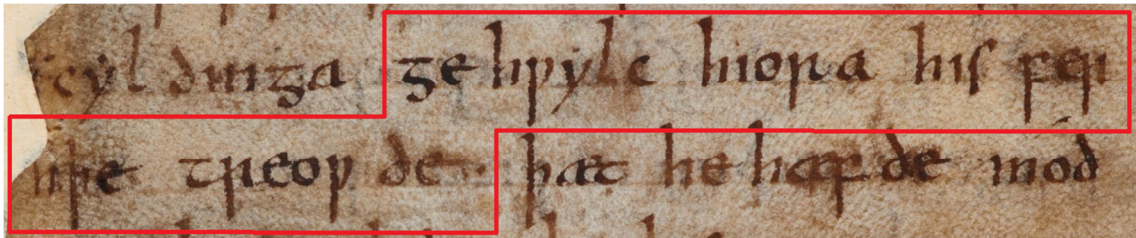 scyl dinga ge hƿylc hiora his fer
hþe treoƿ de · þæt he hæf de mód